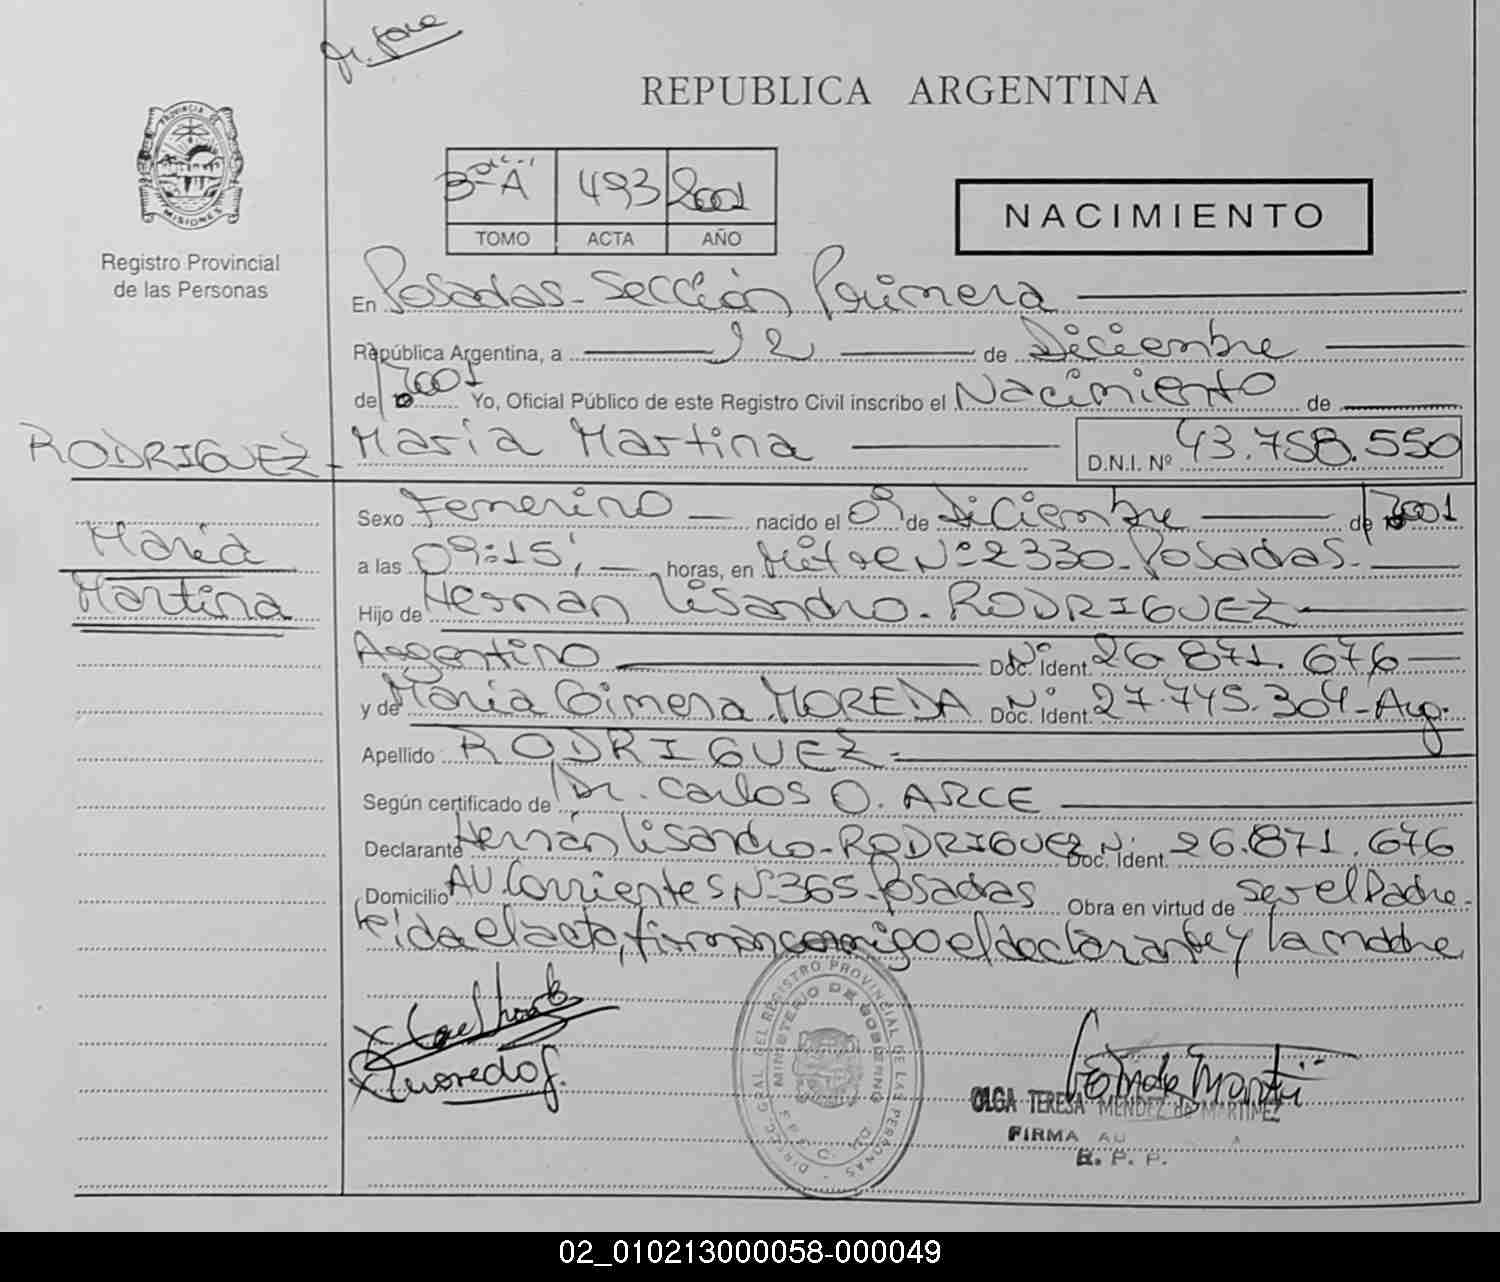 REPUBLICA ARGENTINA
PROVINCIA DE
MISIONES
Registro Provincial
de las Personas
3º "A" 493 2001
TOMO ACTA AÑO
NACIMIENTO
En Posadas - Sección Primera
República Argentina, a 12 de Diciembre
de 2001 Yo, Oficial Público de este Registro Civil inscribo el Nacimiento de
RODRIGUEZ - María Martina D.N.I. Nº 43.758.550
Sexo Femenino nacido el 09 de Diciembre de 2001
María
a las 09:15' horas, en Mitre Nº 2330 - Posadas.
Martina
Hijo de Hernan Lisandro - RODRIGUEZ
Argentino Doc. Ident. Nº 26.871.676
y de María Gimena MOREDA Doc. Ident. Nº 27.745.304 - Arg.
Apellido RODRIGUEZ -
Según certificado de Dr. Carlos O. ARCE
Declarante Hernán Lisandro - RODRIGUEZ Doc. Ident. Nº 26.871.676
Domicilio AV. Corrientes Nº 365 - Posadas Obra en virtud de ser el Padre -
Leida el acta, firman conmigo el declarante y la madre
DIREC. GRAL. DEL REGISTRO PROVINCIAL DE LAS PERSONAS
MINISTERIO DE GOBIERNO
OLGA TERESA MENDEZ de MARTINEZ
FIRMA AU
R. P. P.
02_010213000058-000049